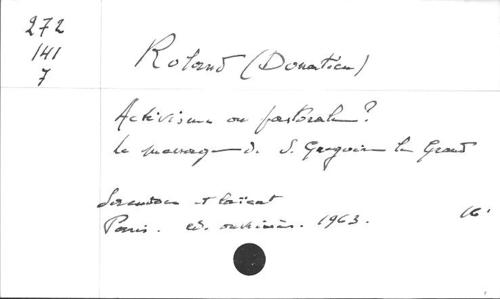 272
141
7
Roland (Donatien)
Activisme ou pastorale?
Le message de S. Gregoire le Grand
et laïcat
Paris. ed. ouvrières. 1963. 16.